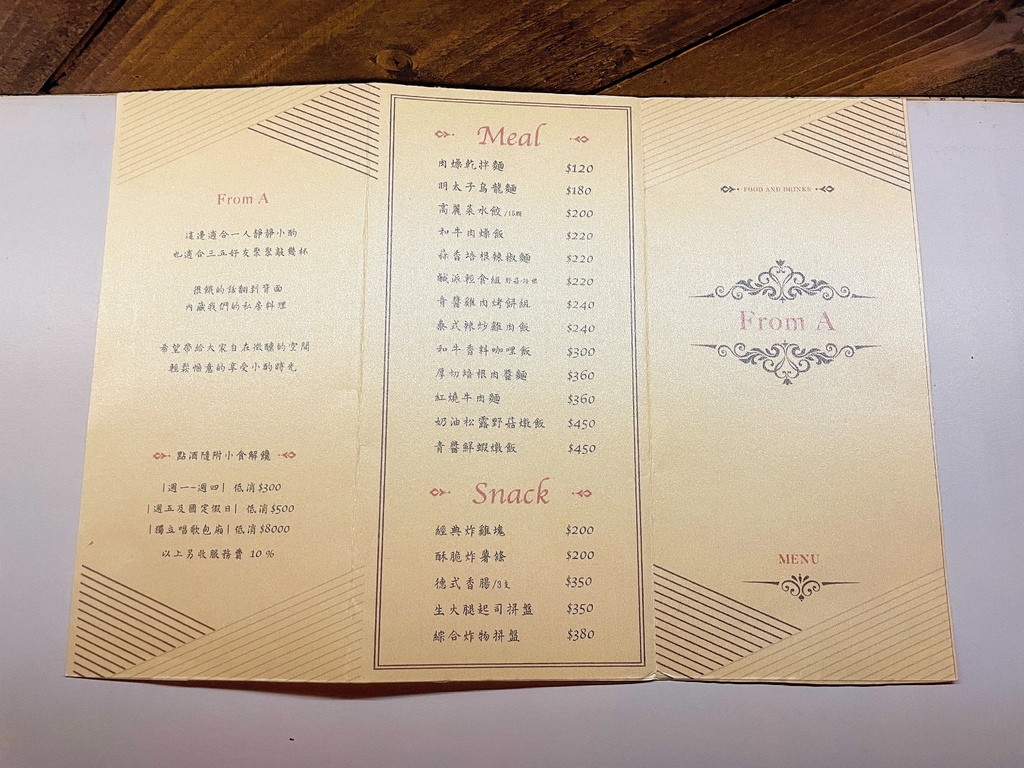 From A
這邊適合一人靜靜小酌
也適合三五好友聚聚敲幾杯
很餓的話翻到背面
內藏我們的私房料理
希望帶給大家自在微醺的空間
輕鬆愜意的享受小酌時光
點酒隨附小食解饞
|週一-週四| 低消$300
|週五及國定假日| 低消$500
|獨立唱歌包廂| 低消$8000
以上另收服務費 10 %
Meal
肉燥乾拌麵 $120
明太子烏龍麵 $180
高麗菜水餃/15顆 $200
和牛肉燥飯 $220
蒜香培根辣椒麵 $220
鹹派輕食組 $220
青醬雞肉烤餅組 $240
泰式辣炒雞肉飯 $240
和牛香料咖哩飯 $300
厚切培根肉醬麵 $360
紅燒牛肉麵 $360
奶油松露野菇燉飯 $450
青醬鮮蝦燉飯 $450
Snack
經典炸雞塊 $200
酥脆炸薯條 $200
德式香腸/3支 $350
生火腿起司拼盤 $350
綜合炸物拼盤 $380
FOOD AND DRINKS
From A
MENU